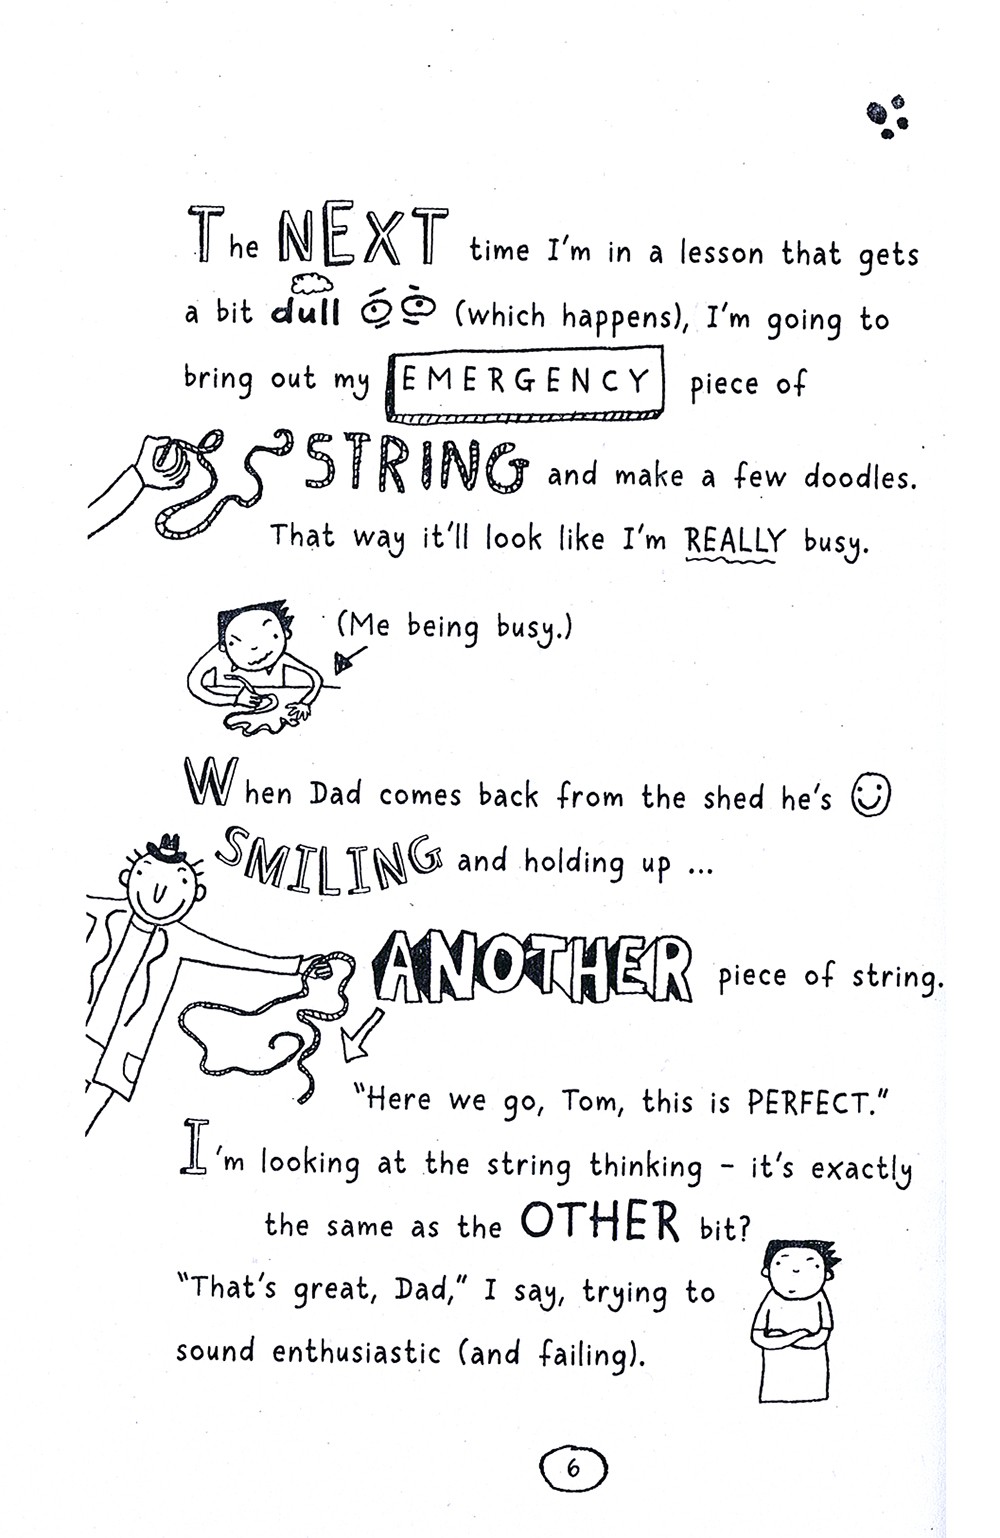 The NEXT time I'm in a lesson that gets
a bit dull (which happens), I'm going to
bring out my EMERGENCY piece of
STRING and make a few doodles.
That way it'll look like I'm REALLY busy.
(Me being busy.)
When Dad comes back from the shed he's
SMILING and holding up ...
ANOTHER piece of string.
"Here we go, Tom, this is PERFECT."
I'm looking at the string thinking - it's exactly
the same as the OTHER bit?
"That's great, Dad," I say, trying to
sound enthusiastic (and failing).
6